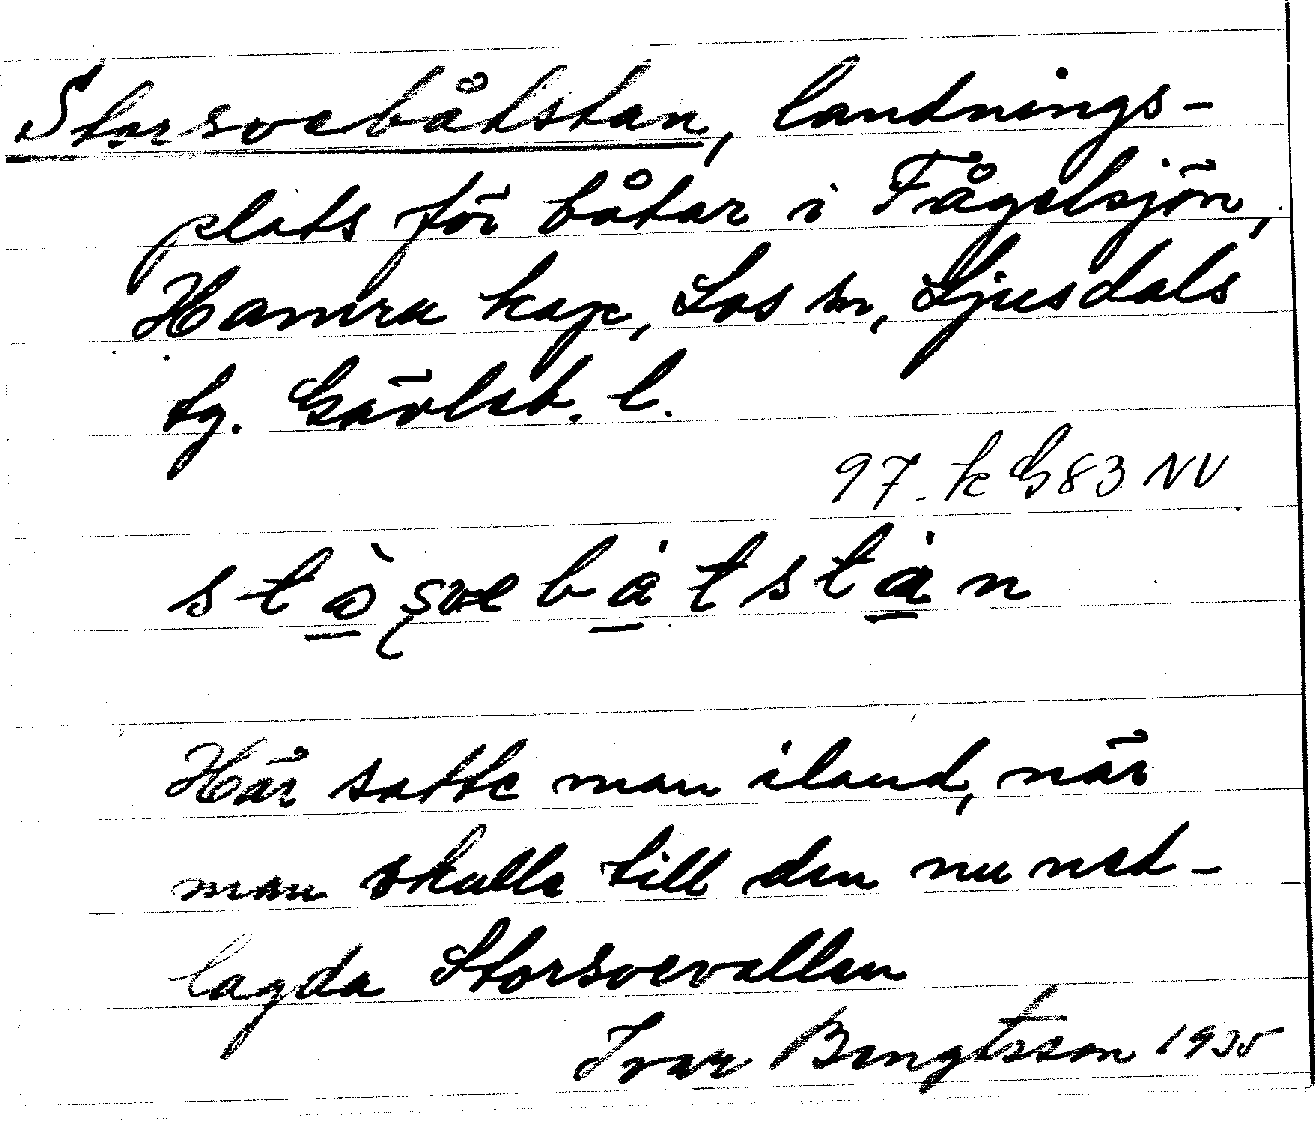 Storsvebåtstan, landnings-
plats för båtar i Fågelsjön,
Hamra kap, Los sn, Ljusdals
tg. Gävleb. l.
97. k G83 NV
Här satte man iland, när
man skulle till den nu ned-
lagda Storsvevallen
Ivar Bengtsson 1935